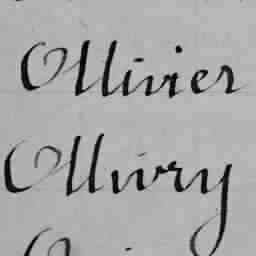 Ollivier
Ollivry